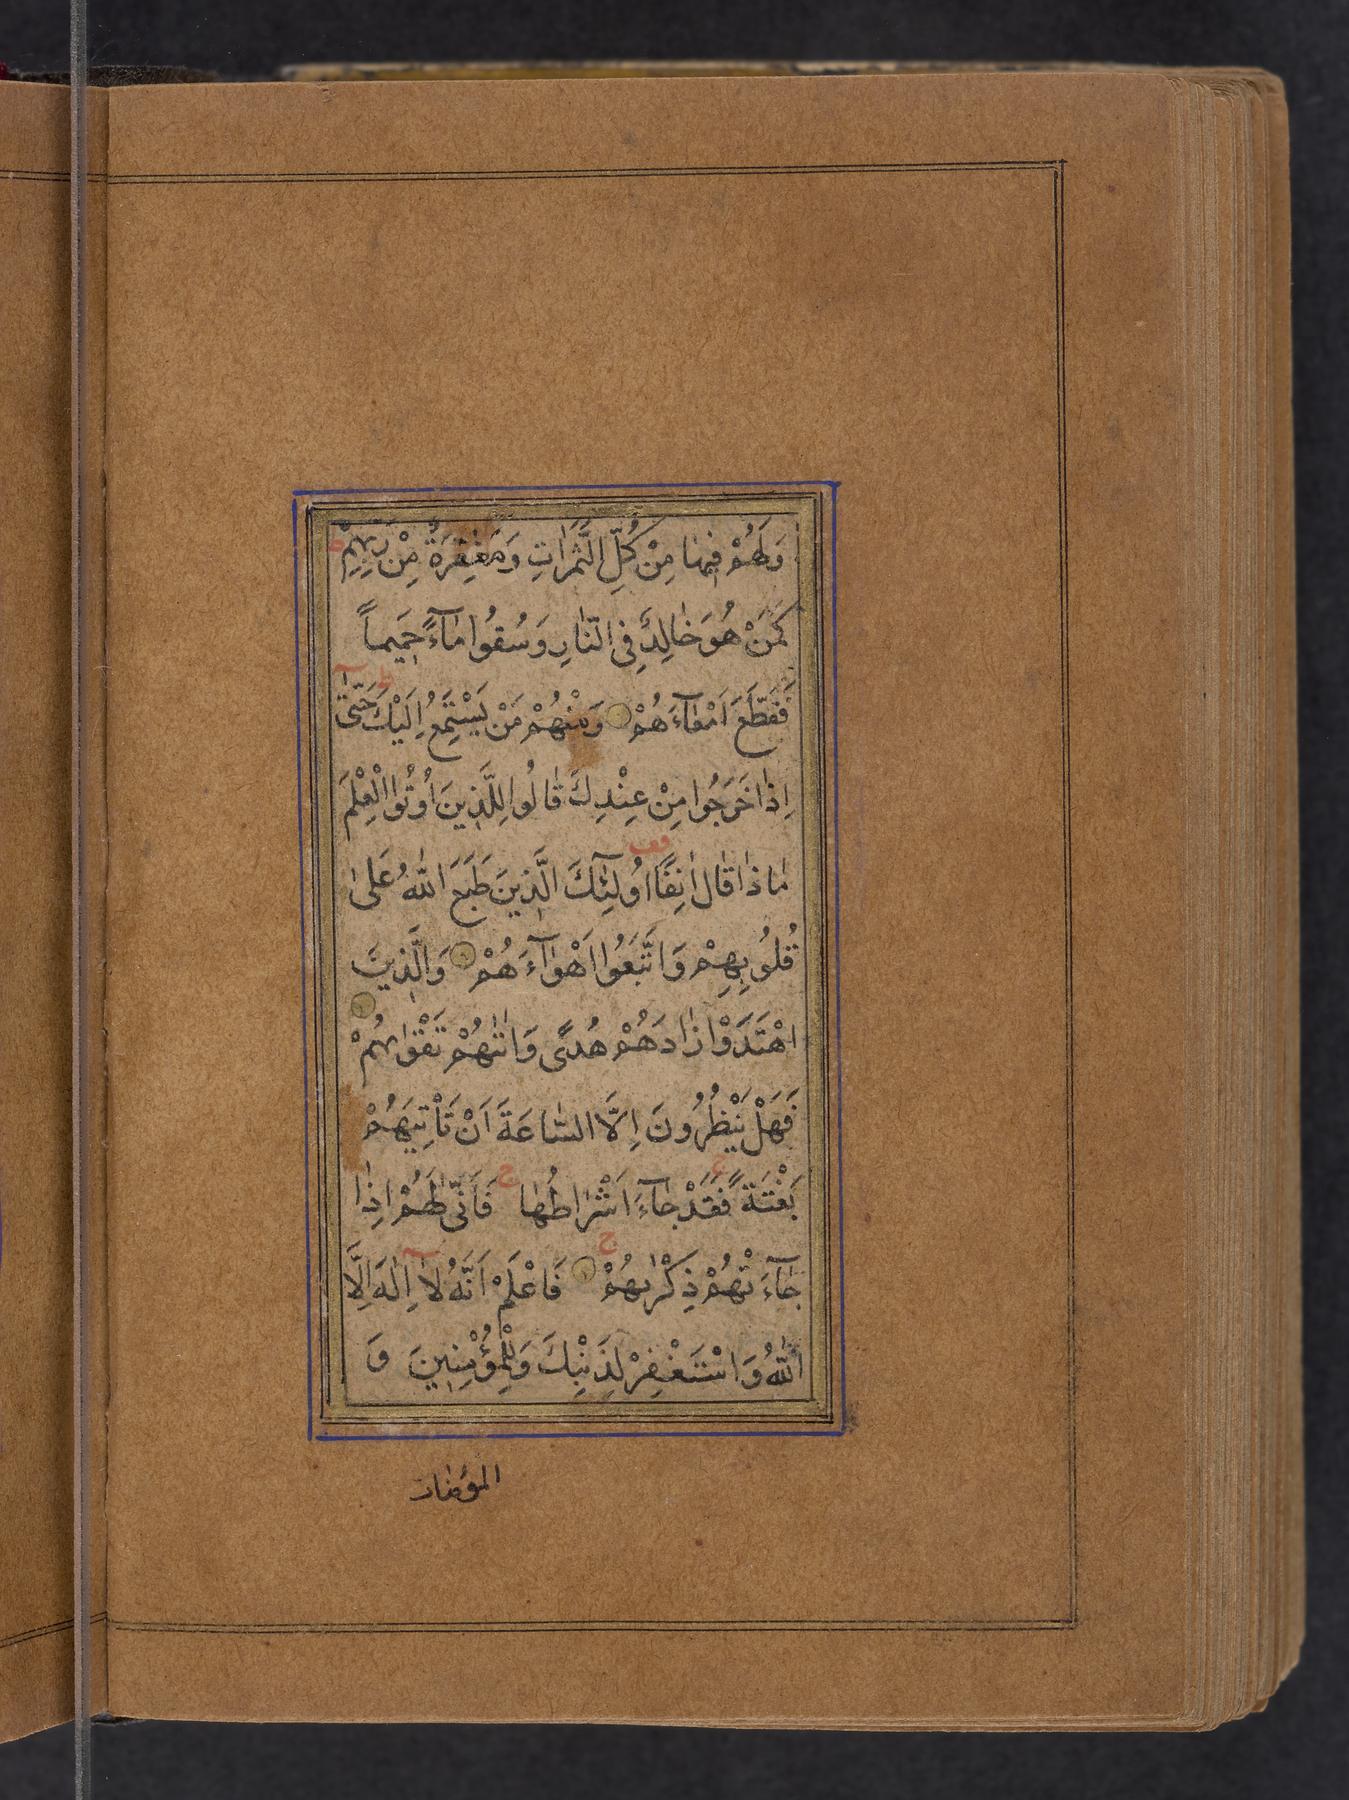 وَلَهُمْ فِيهٰا مِنْ كُلِّ الثَّمَرٰاتِ وَمَغْفِرَةٌ مِنْ رَبِّهِمْ
كَمَنْ هُوَ خٰالِدٌ فِى النّٰارِ وَسُقُوا مٰآءً حَمِيماً
فَقَطَّعَ اَمْعٰآءَهُمْ وَمِنْهُمْ مَنْ يَسْتَمِعُ اِلَيْكَ حَتّىٰ
اِذٰا خَرَجُوا مِنْ عِنْدِكَ قٰالُوا لِلَّذِينَ اُوتُوا الْعِلْمَ
مٰاذٰا قٰالَ اٰنِفًا اُولٰئِكَ الَّذِينَ طَبَعَ اللّٰهُ عَلىٰ
قُلُوبِهِمْ وَاتَّبَعُوا اَهْوٰآءَهُمْ وَالَّذِينَ
اهْتَدَوْا زٰادَهُمْ هُدًى وَاٰتٰهُمْ تَقْوٰىهُمْ
فَهَلْ يَنْظُرُونَ اِلَّا السّٰاعَةَ اَنْ تَاْتِيَهُمْ
بَغْتَةً فَقَدْ جٰآءَ اَشْرٰاطُهٰا فَاَنّٰى لَهُمْ اِذٰا
جٰآءَتْهُمْ ذِكْرٰىهُمْ فَاعْلَمْ اَنَّهُ لٰا اِلٰهَ اِلَّا
اللّٰهُ وَاسْتَغْفِرْ لِذَنْبِكَ وَلِلْمُؤْمِنِينَ وَ
المؤمنات